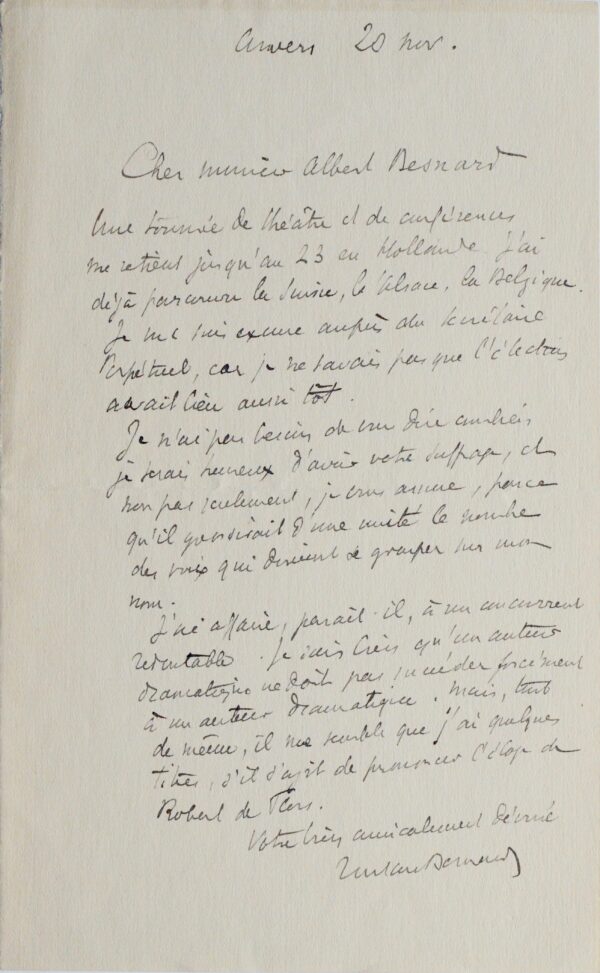 Anvers 20 nov.
Cher monsieur Albert Besnard
Une tournée de théâtre et de conférences
me retient jusqu'au 23 en Hollande. J'ai
déjà parcouru la Suisse, l'Alsace, la Belgique.
Je me suis excusé auprès du secrétaire
Perpétuel, car je ne savais pas que l'élection
avait lieu aussi tôt.
Je n'ai pas besoin de vous dire combien
je serais heureux d'avoir votre suffrage, et
non pas seulement, je vous assure, parce
qu'il grossirait d'une unité le nombre
des voix qui doivent se grouper sur mon
nom.
J'ai affaire, paraît-il, à un concurrent
redoutable. Je sais bien qu'un auteur
dramatique ne doit pas succéder forcément
à un auteur dramatique. Mais, tout
de même, il me semble que j'ai quelques
titres, s'il s'agit de prononcer l'éloge de
Robert de Flers.
Votre bien amicalement dévoué
Tristan Bernard